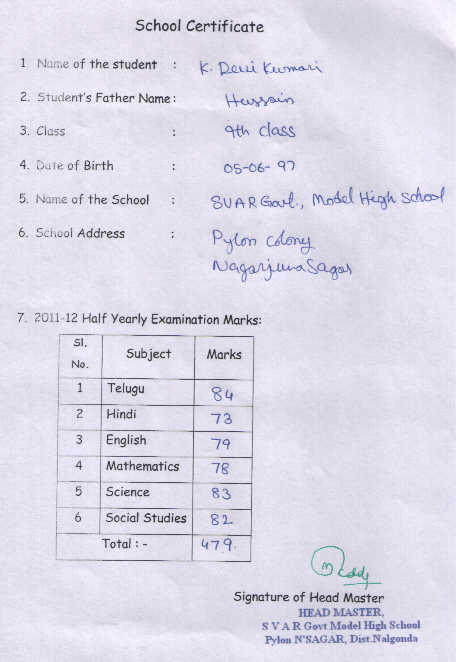 School Certificate
1 Name of the student : K. Devi Kumari
2. Student's Father Name : Hussain
3. Class : 9th class
4. Date of Birth : 05-06-97
5. Name of the School : SVAR Govt., Model High School
6. School Address : Pylon colony
Nagarjuna Sagar
7. 2011-12 Half Yearly Examination Marks:
Sl. No. Subject Marks
1 Telugu 84
2 Hindi 73
3 English 79
4 Mathematics 78
5 Science 83
6 Social Studies 82
Total : - 479.
Signature of Head Master
HEAD MASTER,
S V A R Govt Model High School
Pylon N'SAGAR, Dist.Nalgonda